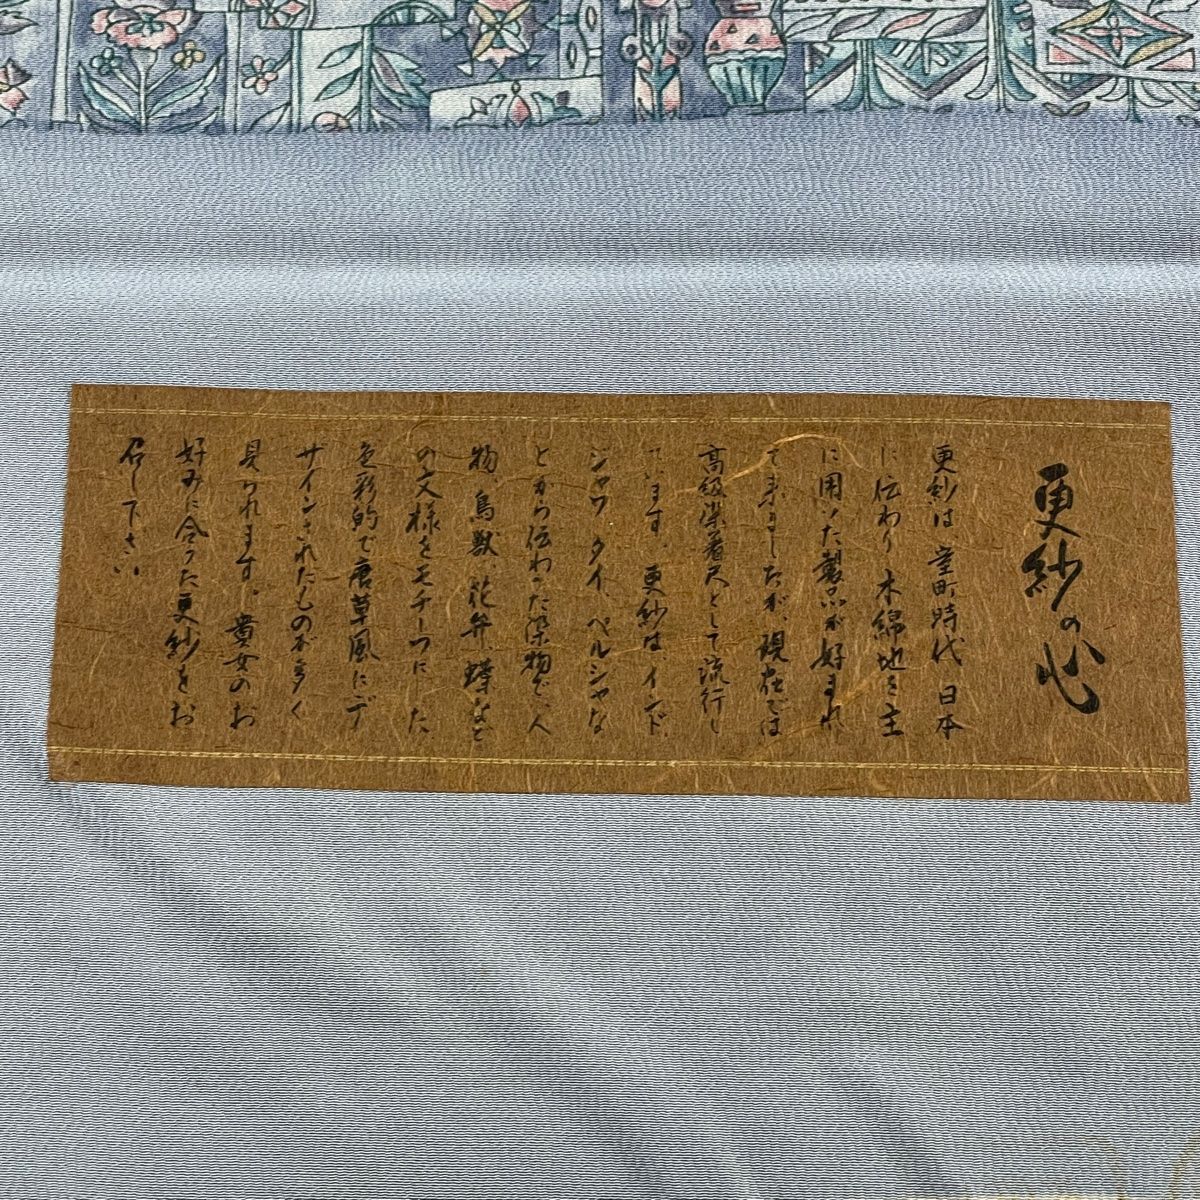 更紗の心
更紗は、室町時代 日本
に伝わり 木綿地を主
に用いた製品が好まれ
て来ましたが、現在では
高級染着尺として流行し
ています。更紗は、インド、
ジャワ タイ、ペルシャな
どから伝わった染物で、人
物、鳥獣、花弁、蝶など
の文様をモチーフにした
色彩的で唐草風にデ
ザインされたものが多く
見られます。貴女のお
好みに合った更紗をお
召し下さい